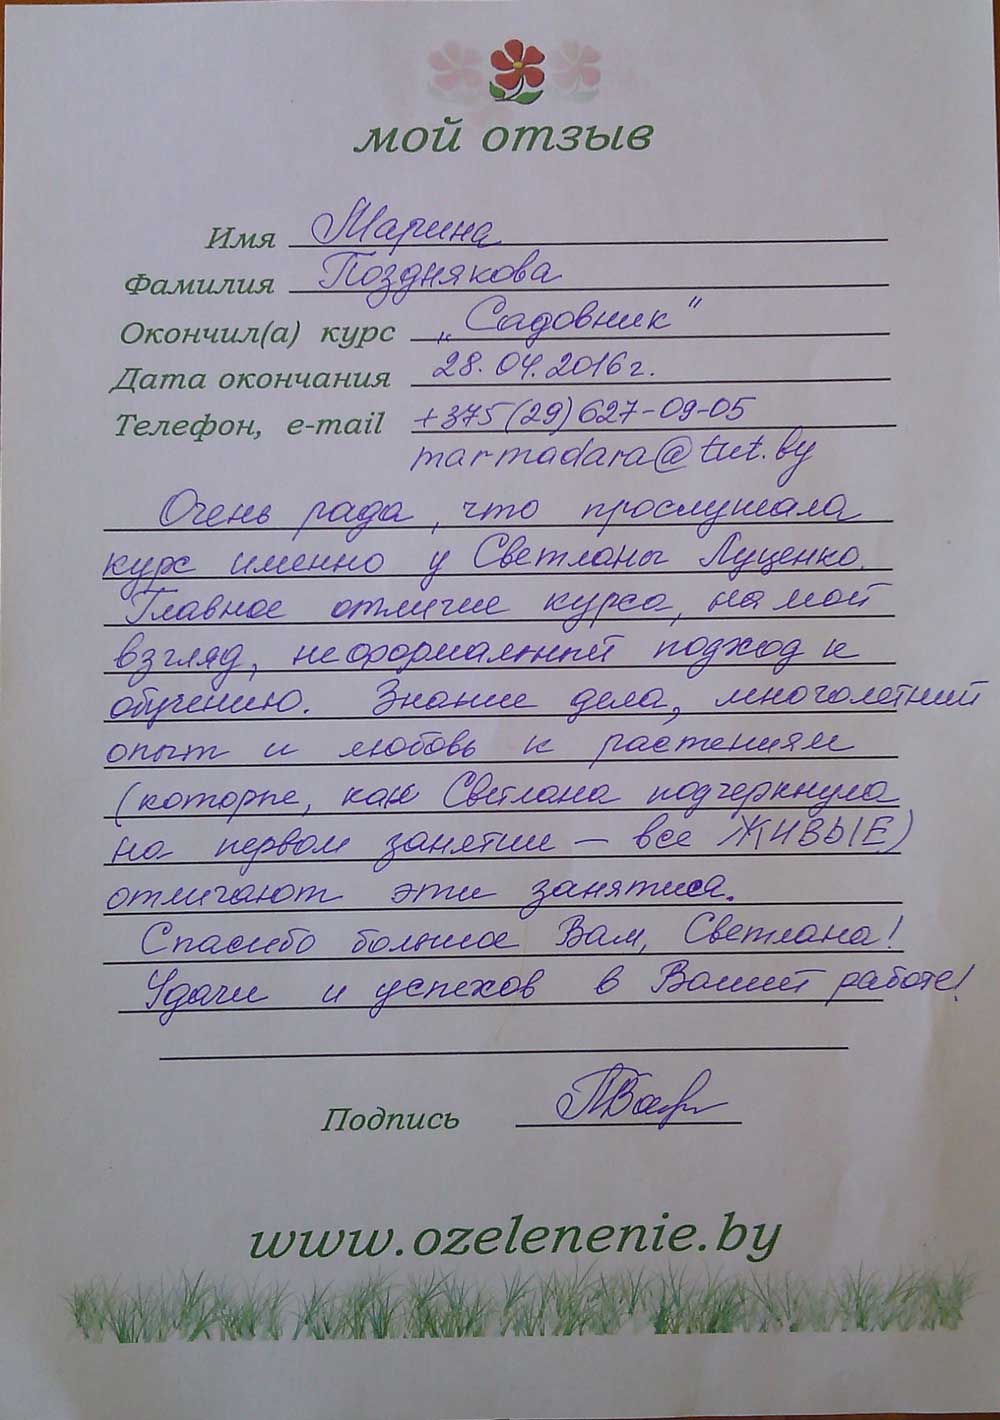 мой отзыв
Имя Марина
Фамилия Позднякова
Окончил(а) курс „Садовник"
Дата окончания 28.04.2016г.
Телефон, e-mail +375(29)627-09-05
marmadara@tut.by
Очень рада, что прослушала
курс именно у Светланы Луценко.
Главное отличие курса, на мой
взгляд, неформальный подход к
обучению. Знание дела, многолетний
опыт и любовь к растениям
(которые, как Светлана подчеркнула
на первом занятии – все ЖИВЫЕ)
отличают эти занятия.
Спасибо большое Вам, Светлана!
Удачи и успехов в Вашей работе!
Подпись
www.ozelenenie.by